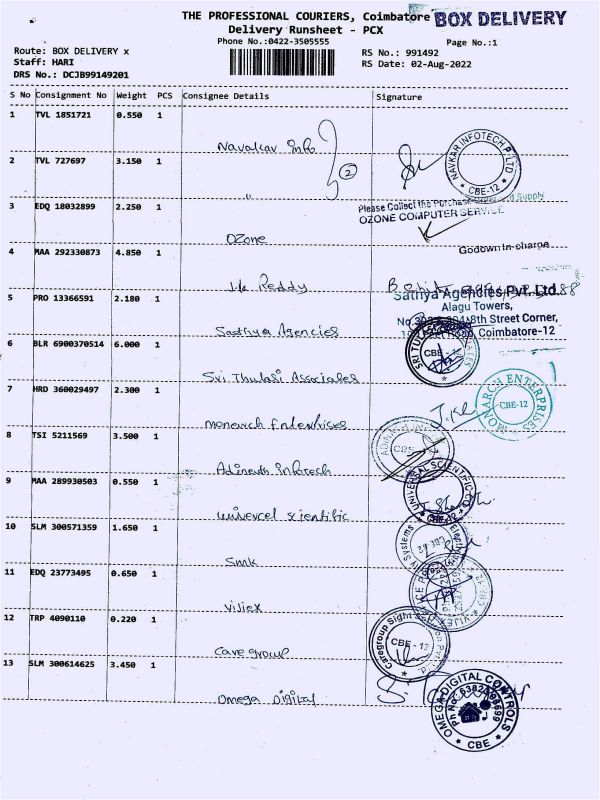 THE PROFESSIONAL COURIERS, Coimbatore BOX DELIVERY
Delivery Runsheet - PCX
Phone No.:0422-3505555
Page No.:1
Route: BOX DELIVERY x
RS No.: 991492
Staff: HARI
RS Date: 02-Aug-2022
DRS No.: DCJB99149201
S No Consignment No Weight PCS Consignee Details Signature
1 TVL 1851721 0.550 1
Navakar Info
2
NAVKAR INFOTECH P LTD * CBE-12 *
2 TVL 727697 3.150 1
"
Please Collect the Purchase Supply
3 EDQ 18032899 2.250 1
OZONE COMPUTER SERVICE
Ozone
Godown In-charge
4 MAA 292330873 4.850 1
Reddy
Sathya Agencies Pvt. Ltd.
5 PRO 13366591 2.180 1
Alagu Towers,
8th Street Corner,
Coimbatore-12
Sathya Agencies
6 BLR 6900370514 6.000 1
SRI CBE-12
Sri Thulasi Associates
7 HRD 360029497 2.300 1
MONARCH ENTERPRISES CBE-12
monarch Enterprises
8 TSI 5211569 3.500 1
Adinath Infotech
9 MAA 289930503 0.550 1
UNIVERSAL SCIENTIFIC CO. * CBE-12 *
univercel scientific
10 SLM 300571359 1.650 1
Systems
CBE-12
Smnk
11 EDQ 23773495 0.650 1
Vijjex
12 TRP 4090110 0.220 1
Caregroup Sight
CBE - 12
Care group
13 SLM 300614625 3.450 1
Omega Digital
OMEGA DIGITAL CONTROLS * CBE *